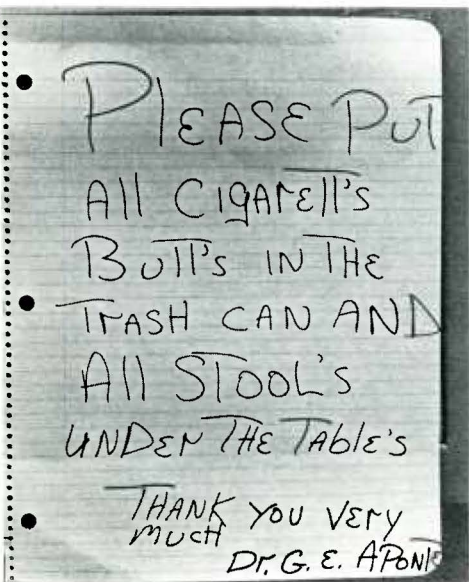 PlEASE PuT
All CIgArEtt's
BuTT's IN THE
TrASH CAN AND
All STOOL'S
UNDEr THE TAblE's
THANK YOU VEry
MUCH
Dr. G. E. APONTE